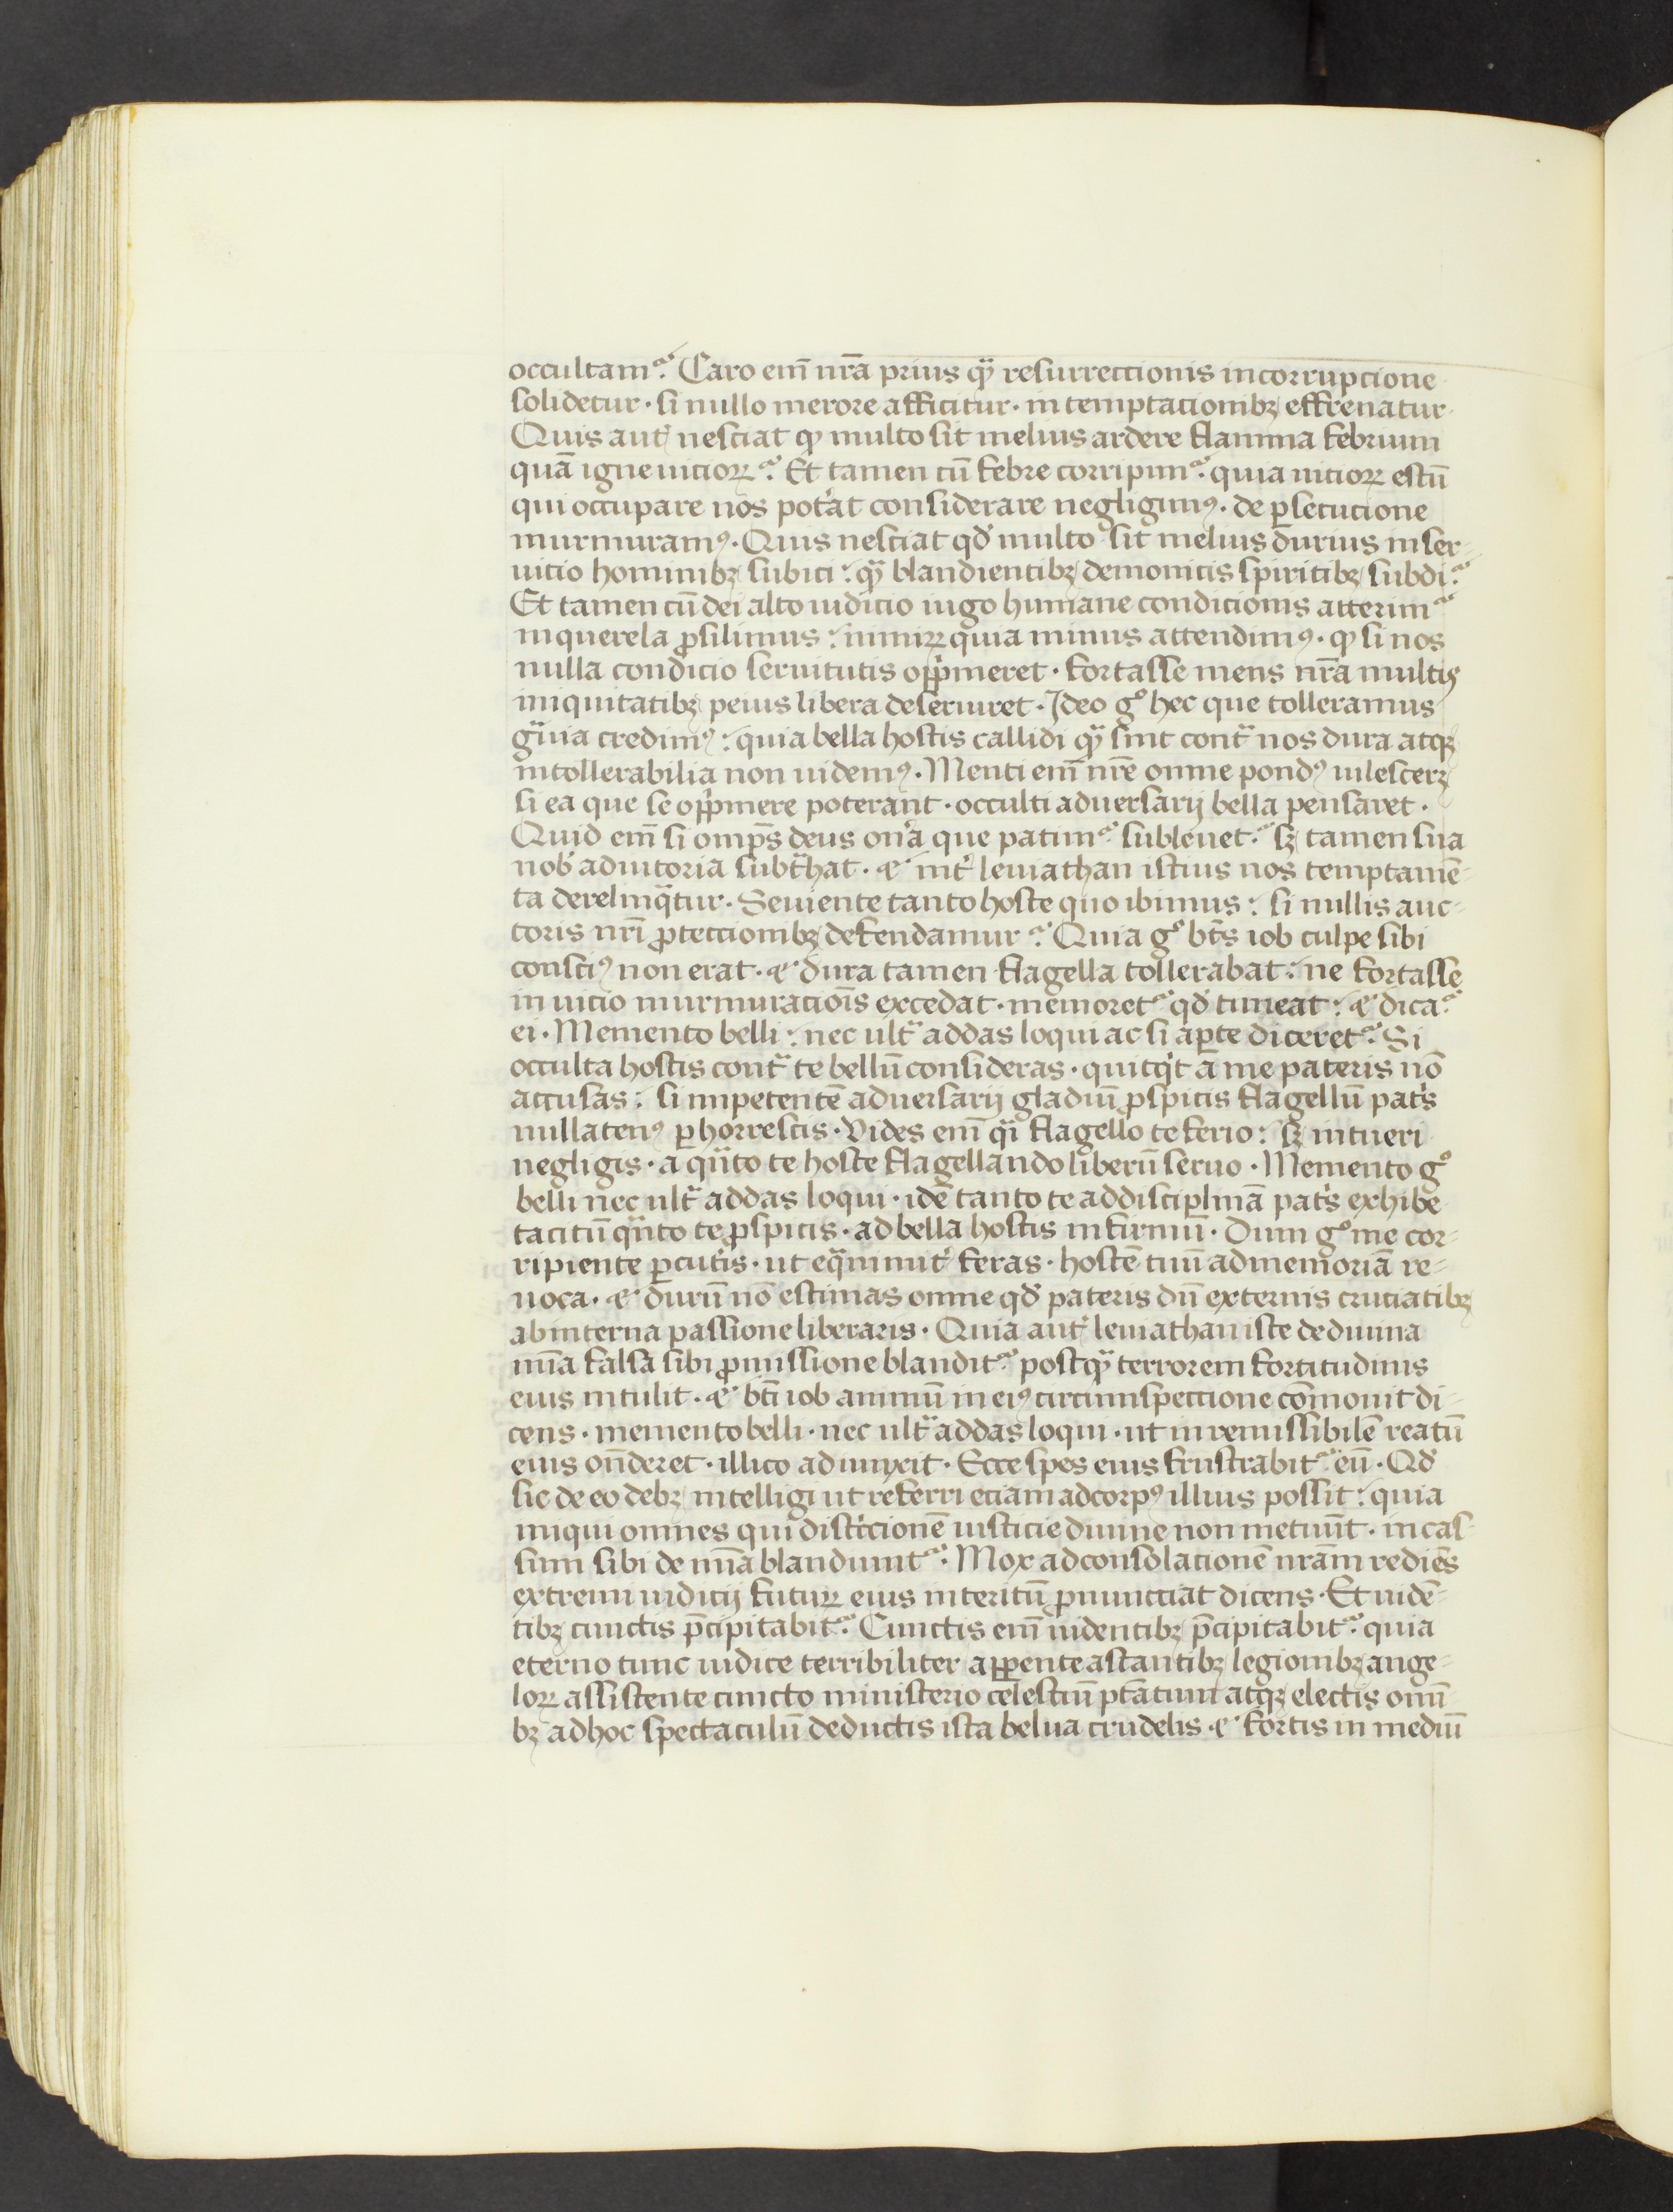 occultam᷑. Caro em̄ nr̄a prius qͣ̄ resurrectionis incorrupcione
solidetur · si nullo merore afficitur · in temptacionibꝫ effrenatur
Quis aut̄ nesciat ꝙ multo sit melius ardere flamma febrium
quā igne uicioꝝ᷑. Et tamen cū febre corripim᷑. quia uicioꝝ estū
qui occupare nos pot̾at considerare negligimꝰ · de ꝑsecucione
murmuramꝰ · Quis nesciat qd̾ multo sit melius durius in ser-
uicio hominibꝫ subici : qͣ̄ blandientibꝫ demonicis spiritibꝫ subdi᷑.
Et tamen cū dei alto iudicio iugo humane condicionis atterim᷑
in querela ꝓsilimus : nimiꝝ quia minus attendimꝰ · ꝙ si nos
nulla condicio seruitutis opp̾meret · fortasse mens nr̄a multis
iniquitatibꝫ peius libera deseruiret · Ideo gͦ hec que tolleramus
gͣuia credimꝰ : quia bella hostis callidi qͣ̄ sint contͣ nos dura atqꝫ
intollerabilia non uidemꝰ · Menti em̄ nr̄e omne pondꝰ uilescerꝫ
si ea que se opp̾mere poterant · occulti aduersarij bella pensaret ·
Quid em̄ si omp̄s deus on̾a que patim᷑. subleuet᷑. sꝫ tamen sua
nob̾ adiutoria subtͣhat · ⁊ int̾ leuiathan istius nos temptamē-
ta derelinqͣtur · Seuiente tanto hoste quo ibimus : si nullis auc-
toris nr̄i ꝓteccionibꝫ defendamur᷑. Quia gͦ bt̄s iob culpe sibi
consciꝰ non erat · ⁊ dura tamen flagella tollerabat : ne fortasse
in uicio murmuracioīs excedat · memoret᷑. qd̾ timeat : ⁊ dica᷑.
ei · Memento belli : nec ultͣ addas loqui ac si aꝑte diceret᷑. Si
occulta hostis contͣ te bellū consideras · quitqͥt a me pateris nō
accusas : si impetentē aduersarij gladiū ꝓspicis flagellū pat̾s
nullatenꝰ ꝑhorrescis · Vides em̄ qͣ flagello te ferio : sꝫ intueri
negligis · a qͣ̄to te hoste flagellando liberū seruo · Memento gͦ
belli nec ultͣ addas loqui · idē tanto te ad disciplinā pat̾s exhibe
tacitū qͣ̄to te ꝓspicis · ad bella hostis infirmū · Dum gͦ me cor-
ripiente ꝑcut̾is · ut eqͣnimit̾ feras · hostē tuū ad memoriā re-
uoca · ⁊ durū nō estimas omne qd̾ pateris dū externis cruciatibꝫ
ab interna passione liberaris · Quia aut̄ leuiathan iste de diuina
mīa falsa sibi ꝓmissione blandit᷑. postqͣ̄ terrorem fortitudinis
eius intulit · ⁊ bt̄i iob animū in eiꝰ circumspectione cōmouit di-
cens · memento belli · nec ultͣ addas loqui · ut inremissibilē reatū
eius on̄deret · illico adiunxit · Ecce spes eius frustrabit᷑ eū · Qd̾
sic de eo debꝫ intelligi ut referri eciam ad corpꝰ illius possit : quia
iniqui omnes qui distͥccionē iusticie diuine non metuūt · incas-
sum sibi de mīa blandiunt᷑. Mox ad consolacionē nrām rediēs
extremi iudicij futuꝝ eius interitū ꝓnuncciat dicens · Et uidē-
tibꝫ cunctis p̄cipitabit᷑. Cunctis em̄ uidentibꝫ p̄cipitabit᷑. quia
eterno tunc iudice terribiliter apꝑente astantibꝫ legionibꝫ ange-
loꝝ assistente cuncto ministerio celestiū ptātum atqꝫ electis omī-
bꝫ ad hoc spectaculū deductis ista belua crudelis ⁊ fortis in mediū